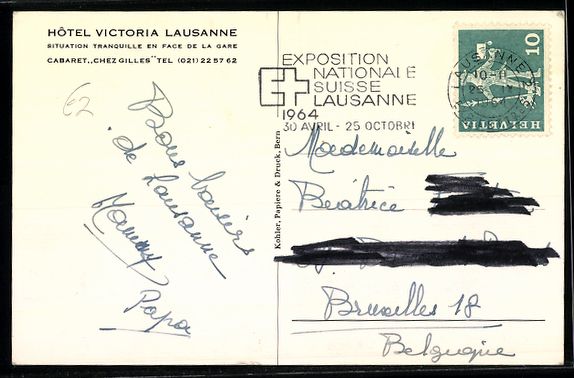 HÔTEL VICTORIA LAUSANNE
SITUATION TRANQUILLE EN FACE DE LA GARE
CABARET „CHEZ GILLES" TEL (021) 22 57 62
€2
Bons baisers
de Lausanne
Maman
Papa
Kohler, Papiere & Druck, Bern
EXPOSITION
NATIONALE
SUISSE
LAUSANNE
1964
30 AVRIL - 25 OCTOBRE
LAUSANNE
10
HELVETIA
Mademoiselle
Béatrice
Bruxelles 18
Belgique